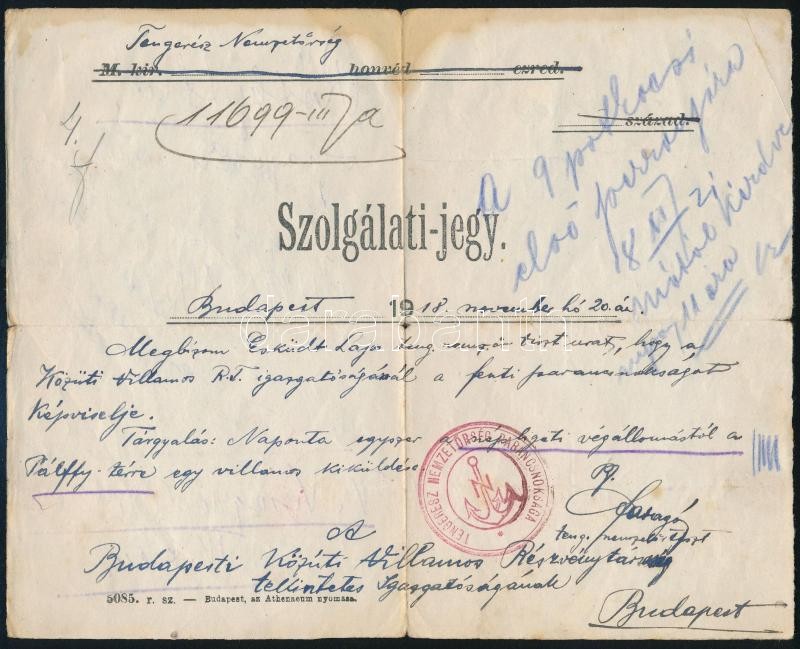 Tengerész Nemzetőrség
M. kir. honvéd ezred.
11699-III/a
század.
4.
A 9 pótkocsi
első
18 XII 21
mától kezdve
Szolgálati-jegy.
Budapest 1918. november hó 20.-án.
Megbízom Esküdt Lajos teng. nemzőr tiszt urat, hogy a
Közúti Villamos R.T. igazgatóságánál a fenti parancsnokságot
képviselje.
Tárgyalás: Naponta egyszer a népligeti végállomástól a
Pálffy-térre egy villamos kiküldése
TENGERÉSZ NEMZETŐRSÉG PARANCSNOKSÁGA
A
Budapesti Közúti Villamos Részvénytársaság
tekintetes Igazgatóságának
Budapest
5085. r. sz. — Budapest, az Athenaeum nyomása.
darabanth